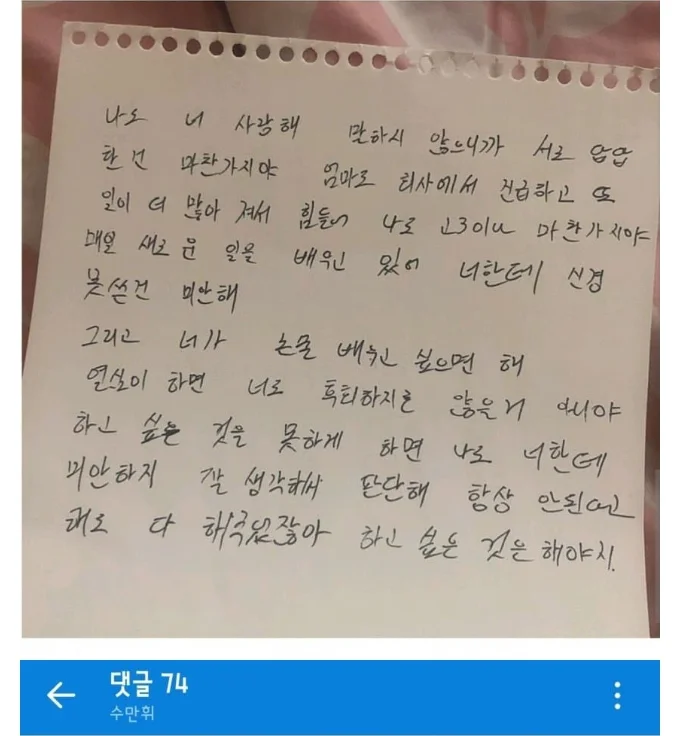 나도 너 사랑해 말하시 않으니까 서로 답답
한 건 마찬가지야 엄마도 회사에서 진급하고 또
일이 더 많아 져서 힘들어 너도 고3이니 마찬가지야
매일 새로운 일을 배우고 있어 너한테 신경
못쓴건 미안해
그리고 너가 논문 배우고 싶으면 해
열심히 하면 너도 후퇴하지는 않을거 아니야
하고 싶은 것을 못하게 하면 나도 너한테
미안하지 잘 생각해서 판단해 항상 안된다고
해도 다 해주었잖아 하고 싶은 것은 해야지.
댓글 74
수만휘